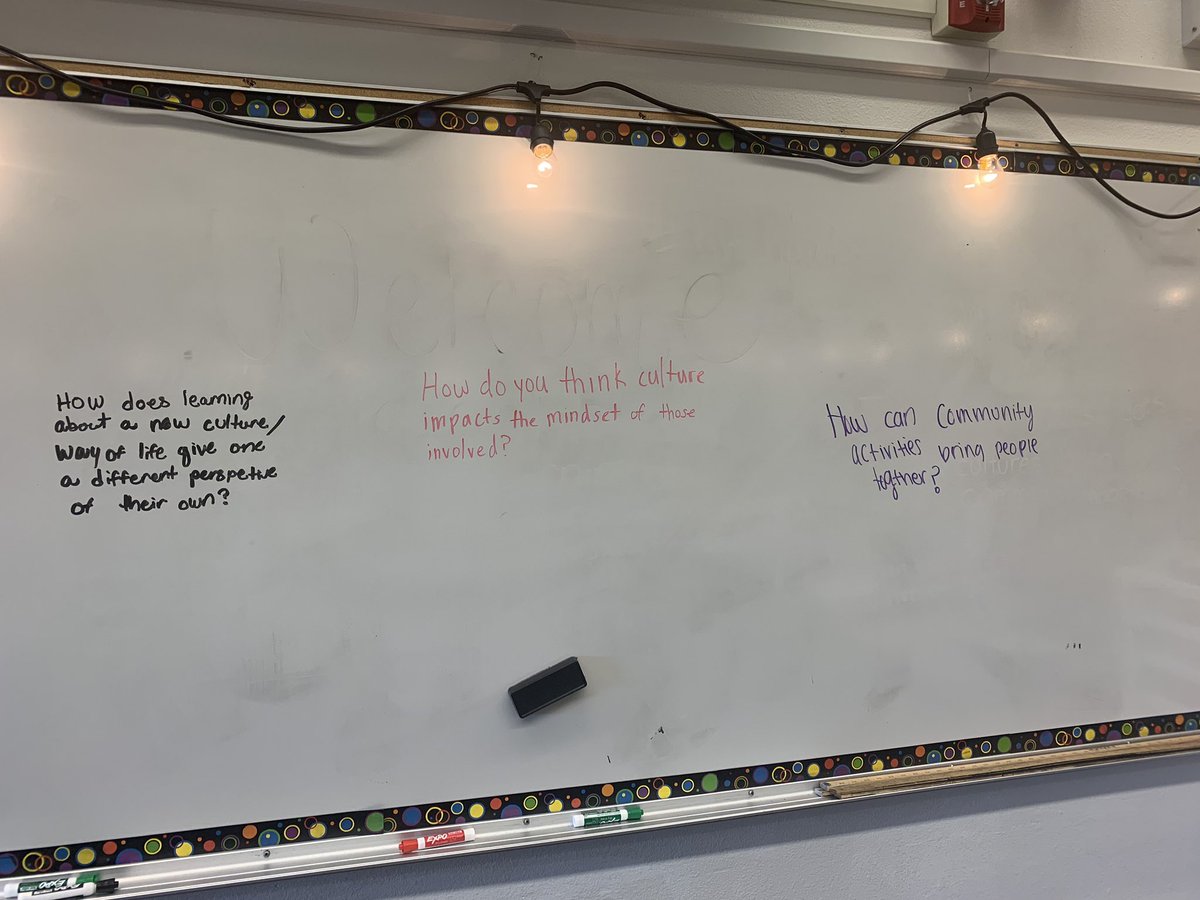 Welcome
How does learning
about a new culture/
way of life give one
a different perspetive
of their own?
How do you think culture
impacts the mindset of those
involved?
How can Community
activities bring people
togther?
EXPO
EXPO